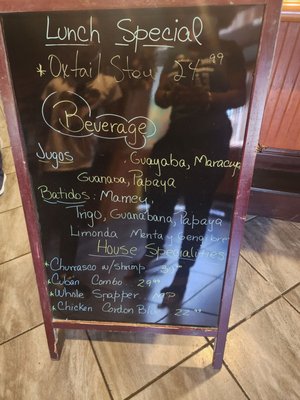 Lunch Special
* Oxtail Stou 24.99
Beverage
Jugos: Guayaba, Maracuya
Guanaba, Papaya
Batidos: Mamey,
Trigo, Guanabana, Papaya
Limonda Menta y Gengibre
House Specialities
* Churrasco w/shrimp
* Cuban Combo 29.99
* Whole Snapper MP
* Chicken Cordon Blu 22.99